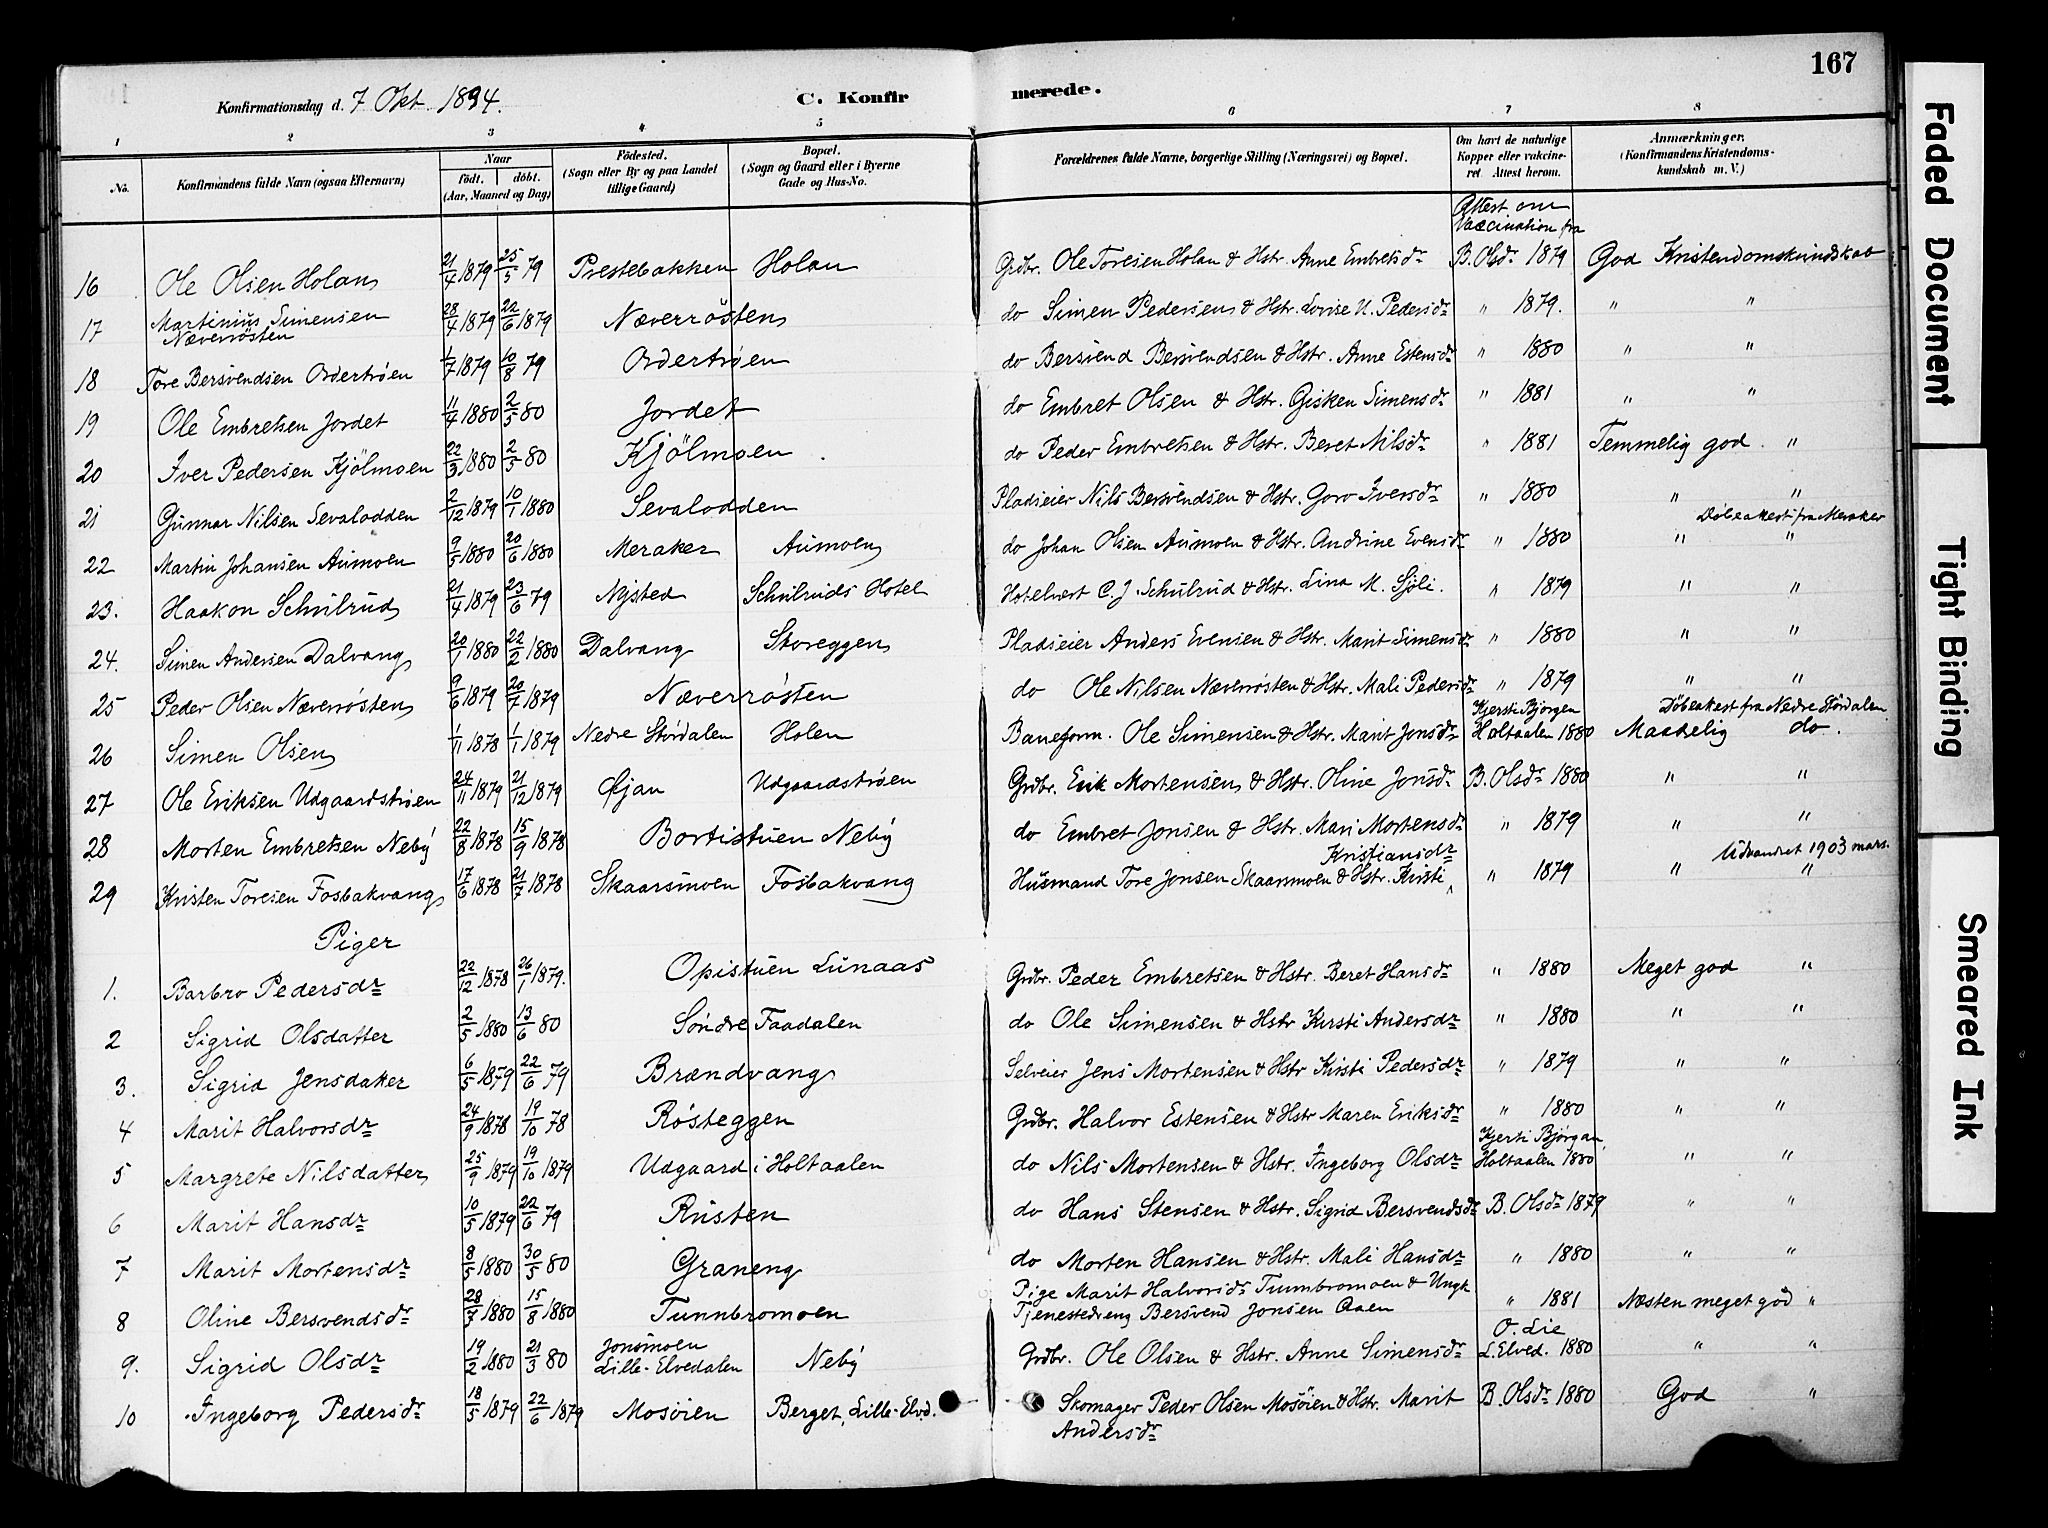 167
Konfirmationsdag d. 7 Okt. 1894.
C. Konfirmerede.
1 2 3 4 5 6 7 8
No. Konfirmandens fulde Navn (ogsaa Efternavn)
Naar født. døbt. (Aar, Maaned og Dag)
Fødested. (Sogn eller By og paa Landet tillige Gaard)
Bopæl. (Sogn og Gaard eller i Byerne Gade og Hus-No.
Forældrenes fulde Navne, borgerlige Stilling (Næringsvei) og Bopæl.
Om havt de naturlige Kopper eller vakcineret. Attest herom.
Anmærkninger. (Konfirmandens Kristendomskundskab m. V.)
Attest om Vaccination fra
16 Ole Olsen Holan 21/4 1879 25/5 79 Prestebakken Holan Grdbr. Ole Toresen Holan & Hstr. Anne Embretsdr B. Olsdr 1879 God Kristendomskundskab
17 Martinius Simensen Næverrösten 28/4 1879 22/6 1879 Næverrösten do Simen Pedersen & Hstr. Lovise U. Pedersdr " 1879. " "
18 Tore Bersvendsen Ordertrøen 1/7 1879 10/8 79 Ordertrøen do Bersvend Bersvendsen & Hstr. Anne Estensdr " 1880 " "
19 Ole Embretsen Jordet 11/4 1880 2/5 80 Jordet do Embret Olsen & Hstr. Gisken Simensdr " 1881 " "
20 Iver Pedersen Kjölmoen 22/3 1880 2/5 80 Kjölmoen do Peder Embretsen & Hstr. Beret Nilsdr " 1881 Temmelig god. "
21 Gunnar Nilsen Sevalodden 2/12 1879 10/1 1880 Sevalodden Pladseier Nils Bersvendsen & Hstr. Goro Iversdr " 1880 " "
22 Martin Johansen Aumoen 9/5 1880 20/6 1880 Meraker Aumoen do Johan Olsen Aumoen & Hstr. Andrine Evensdr " 1880 Döbeattest fra Meraker " "
23. Haakon Schulrud 21/4 1879 23/6 79 Nysted Schulruds Hotel Hotelvert C. J. Schulrud & Hstr. Lina M. Sjöli. " 1879 " "
24. Simen Andersen Dalvang 20/1 1880 22/2 1880 Dalvang Storeggen Pladseier Anders Evensen & Hstr. Marit Simensdr " 1880 " "
25 Peder Olsen Næverrösten 9/6 1879 20/7 1879 Næverrösten do Ole Nilsen Næverrösten & Hstr. Mali Pedersdr " 1879 " "
26 Simen Olsen 1/11 1878 1/1 1879 Nedre Stördalen Holen Baneform. Ole Simensen & Hstr. Marit Jonsdr Kjersti Bjorgen Holtaalen 1880 Döbeattest fra Nedre Stördalen Maadelig do.
27 Ole Eriksen Udgaardstrøen 24/11 1879 21/12 1879 Gjan Udgaardstrøen Grdbr. Erik Mortensen & Hstr. Oline Jonsdr B. Olsdr 1880 " "
28 Morten Embretsen Neby 22/8 1878 15/9 1878 Bortistuen Neby do Embret Jonsen & Hstr. Mari Mortensdr " 1879 " "
29 Kristen Toresen Fosbakvang 17/6 1878 21/7 1878 Skaarsmoen Fosbakvang Husmand Tore Jonsen Skaarsmoen & Hstr. Kirsti Kristiansdr " 1879 Udvandret 1903 mars. " "
Piger
1. Barbro Pedersdr 22/12 1878 26/1 1879. Opistuen Lunaas Grdbr. Peder Embretsen & Hstr. Beret Hansdr " 1880 Meget god "
2 Sigrid Olsdatter 2/5 1880 13/6 80 Söndre Faadalen do Ole Simensen & Hstr Kirsti Andersdr " 1880 " "
3. Sigrid Jensdatter 6/5 1879 22/6 79 Brændvang Selveier Jens Mortensen & Hstr Kirsti Pedersdr " 1879 " "
4 Marit Halvorsdr 24/9 1878 19/10 78 Rösteggen Grdbr. Halvor Estensen & Hstr Maren Eriksdr " 1880 " "
5 Margrete Nilsdatter 25/9 1879 19/10 1879 Udgaard i Holtaalen do Nils Mortensen & Hstr. Ingeborg Olsdr Kjerti Bjørgan, Holtaalen 1880 " "
6 Marit Hansdr 10/5 1879 22/6 79 Rusten do Hans Stensen & Hstr. Sigrid Bersvendsdr B. Olsdr 1879 " "
7 Marit Mortensdr 8/5 1880 30/5 80 Graneng do Morten Hansen & Hstr. Mali Hansdr " 1880 " "
8 Oline Bersvendsdr 28/7 1880 15/8 1880 Tunnbromoen Pige Marit Halvorsdr Tunnbromoen & Ungk. Tjenestedreng Bersvend Jonsen Aaen " 1881 Næsten meget god "
9. Sigrid Olsdr 19/2 1880 21/3 80 Jonsmoen Lille-Elvedalen Neby Grdbr. Ole Olsen & Hstr. Anne Simensdr O. Lie L. Elved. 1880 " "
10 Ingeborg Pedersdr 18/5 1879 22/6 1879 Mosöien Berget, Lille-Elvd. Skomager Peder Olsen Mosöien & Hstr. Marit Andersdr B. Olsdr 1880 God "
Faded Document
Tight Binding
Smeared Ink